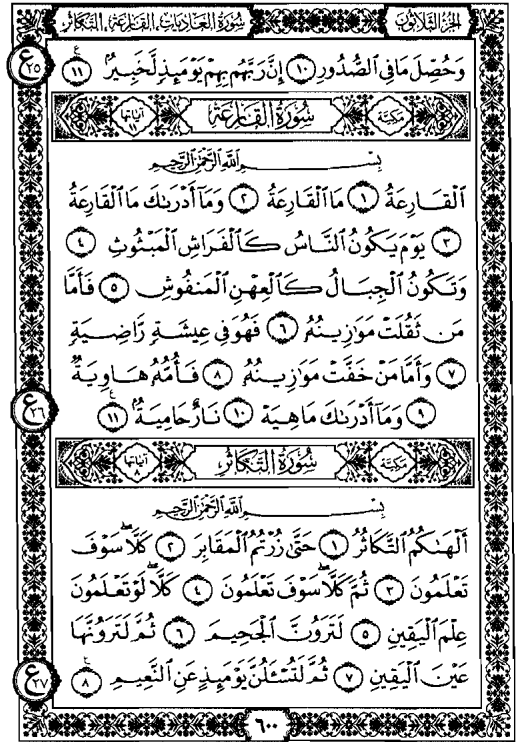 الجزء الثلاثون
سورة العاديات، القارعة، التكاثر
وَحُصِّلَ مَا فِي ٱلصُّدُورِ ١٠ إِنَّ رَبَّهُم بِهِمْ يَوْمَئِذٍ لَّخَبِيرٌۢ ١١
ع ٢٥
مكية سُورَةُ القَارِعَةِ آياتها ١١
بِسْمِ ٱللَّهِ ٱلرَّحْمَٰنِ ٱلرَّحِيمِ
ٱلْقَارِعَةُ ١ مَا ٱلْقَارِعَةُ ٢ وَمَآ أَدْرَىٰكَ مَا ٱلْقَارِعَةُ
٣ يَوْمَ يَكُونُ ٱلنَّاسُ كَٱلْفَرَاشِ ٱلْمَبْثُوثِ ٤
وَتَكُونُ ٱلْجِبَالُ كَٱلْعِهْنِ ٱلْمَنفُوشِ ٥ فَأَمَّا
مَن ثَقُلَتْ مَوَٰزِينُهُۥ ٦ فَهُوَ فِى عِيشَةٍ رَّاضِيَةٍ
٧ وَأَمَّا مَنْ خَفَّتْ مَوَٰزِينُهُۥ ٨ فَأُمُّهُۥ هَاوِيَةٌ
٩ وَمَآ أَدْرَىٰكَ مَا هِيَهْ ١٠ نَارٌ حَامِيَةٌۢ ١١
ع ٢٦
مكية سُورَةُ التَّكَاثُرِ آياتها ٨
بِسْمِ ٱللَّهِ ٱلرَّحْمَٰنِ ٱلرَّحِيمِ
أَلْهَىٰكُمُ ٱلتَّكَاثُرُ ١ حَتَّىٰ زُرْتُمُ ٱلْمَقَابِرَ ٢ كَلَّا سَوْفَ
تَعْلَمُونَ ٣ ثُمَّ كَلَّا سَوْفَ تَعْلَمُونَ ٤ كَلَّا لَوْ تَعْلَمُونَ
عِلْمَ ٱلْيَقِينِ ٥ لَتَرَوُنَّ ٱلْجَحِيمَ ٦ ثُمَّ لَتَرَوُنَّهَا
عَيْنَ ٱلْيَقِينِ ٧ ثُمَّ لَتُسْـَٔلُنَّ يَوْمَئِذٍ عَنِ ٱلنَّعِيمِ ٨
ع ٢٧
٦٠٠